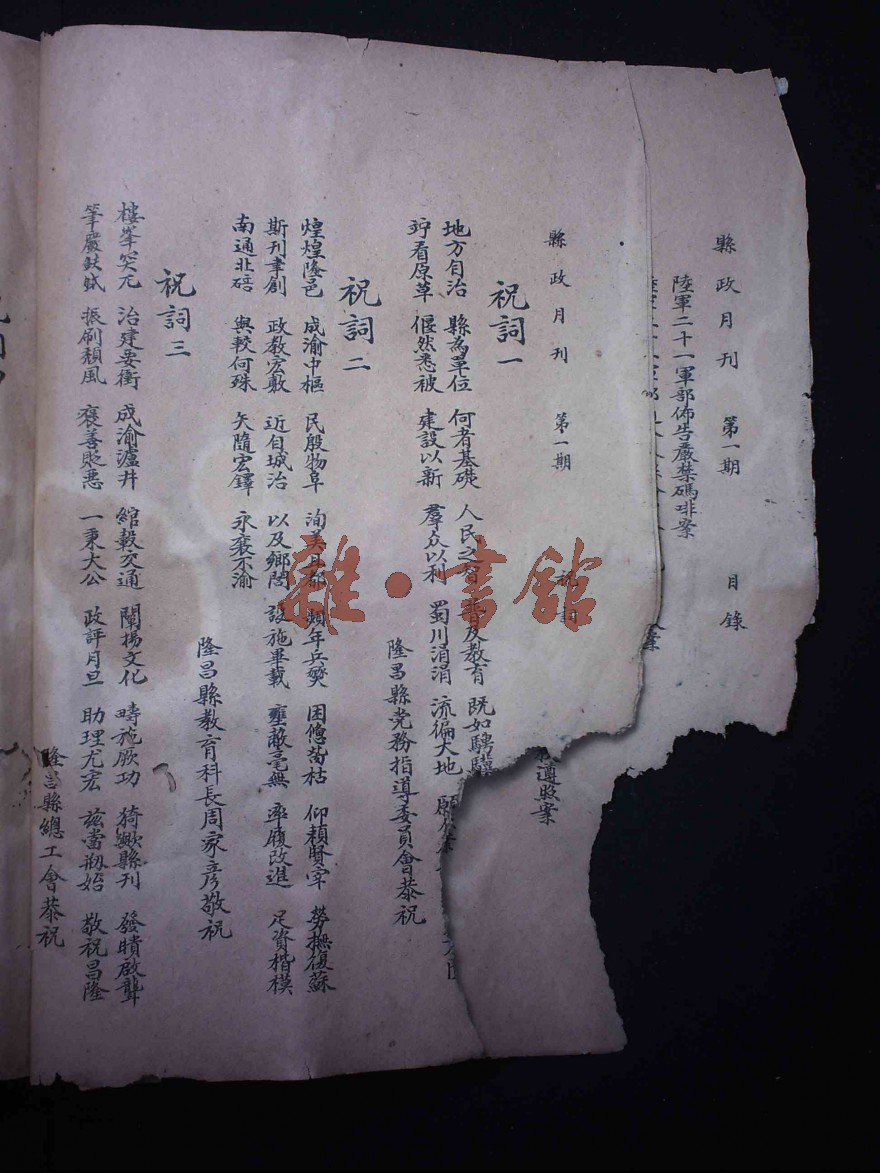 縣政月刊 第一期 目錄
陸軍二十一軍部佈告嚴禁嗎啡案
遵照案
縣政月刊 第一期 祝詞
祝詞一
地方自治 縣為單位 何者基礎 人民之智 普及教育 既如騁驥
竚看原草 偃然悉被 建設以新 羣众以利 蜀川涓涓 流徧大地 願
隆昌縣党務指導委員會恭祝
祝詞二
煌煌隆邑 成渝中樞 民殷物阜 洵美且都 頻年兵燹 困憊菑枯 仰賴賢宰 勞撫復蘇
斯刊聿創 政教宏敷 近自城治 以及鄉閭 設施畢載 壅蔽毫無 率履改進 足資楷模
南通北碚 與較何殊 矢隨宏鐸 永襄不渝
隆昌縣教育科長周家彥敬祝
祝詞三
樓峯突兀 治建要衝 成渝瀘井 綰轂交通 闡揚文化 疇施厥功 猗歟縣刊 發聵啟聾
筆嚴鈇鉞 振刷頹風 褒善貶惡 一秉大公 政評月旦 助理尤宏 茲當刱始 敬祝昌隆
隆昌縣總工會恭祝
雜·書館